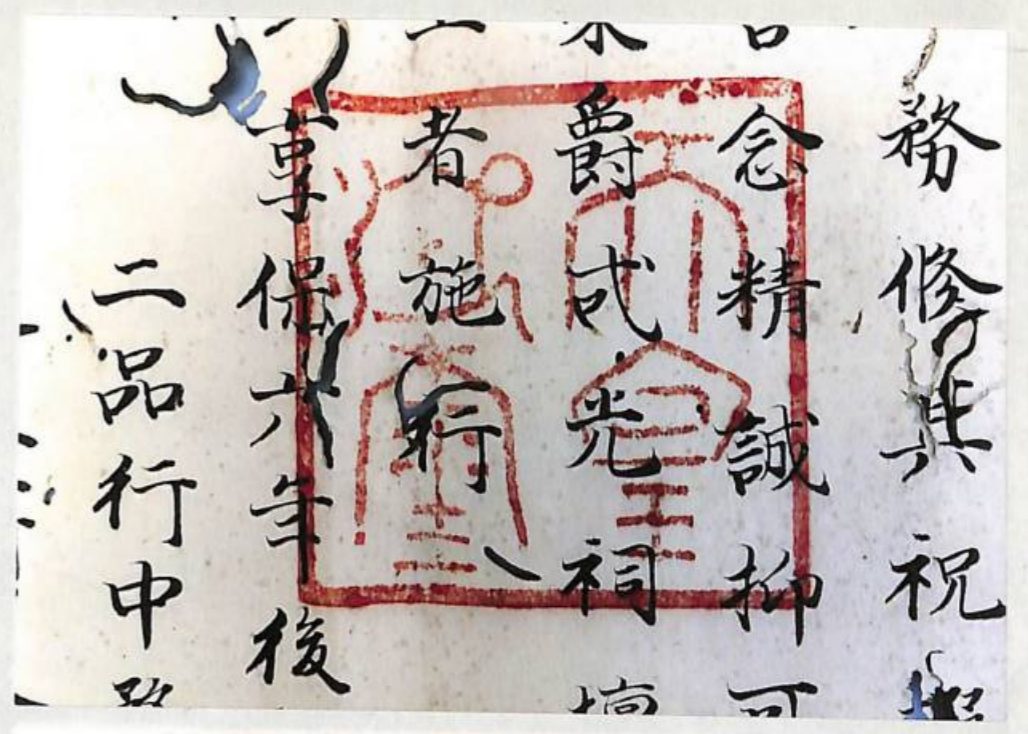 務修其祝
念精誠抑可
爵式光祠壇
者施行
享保六年後
二品行中務